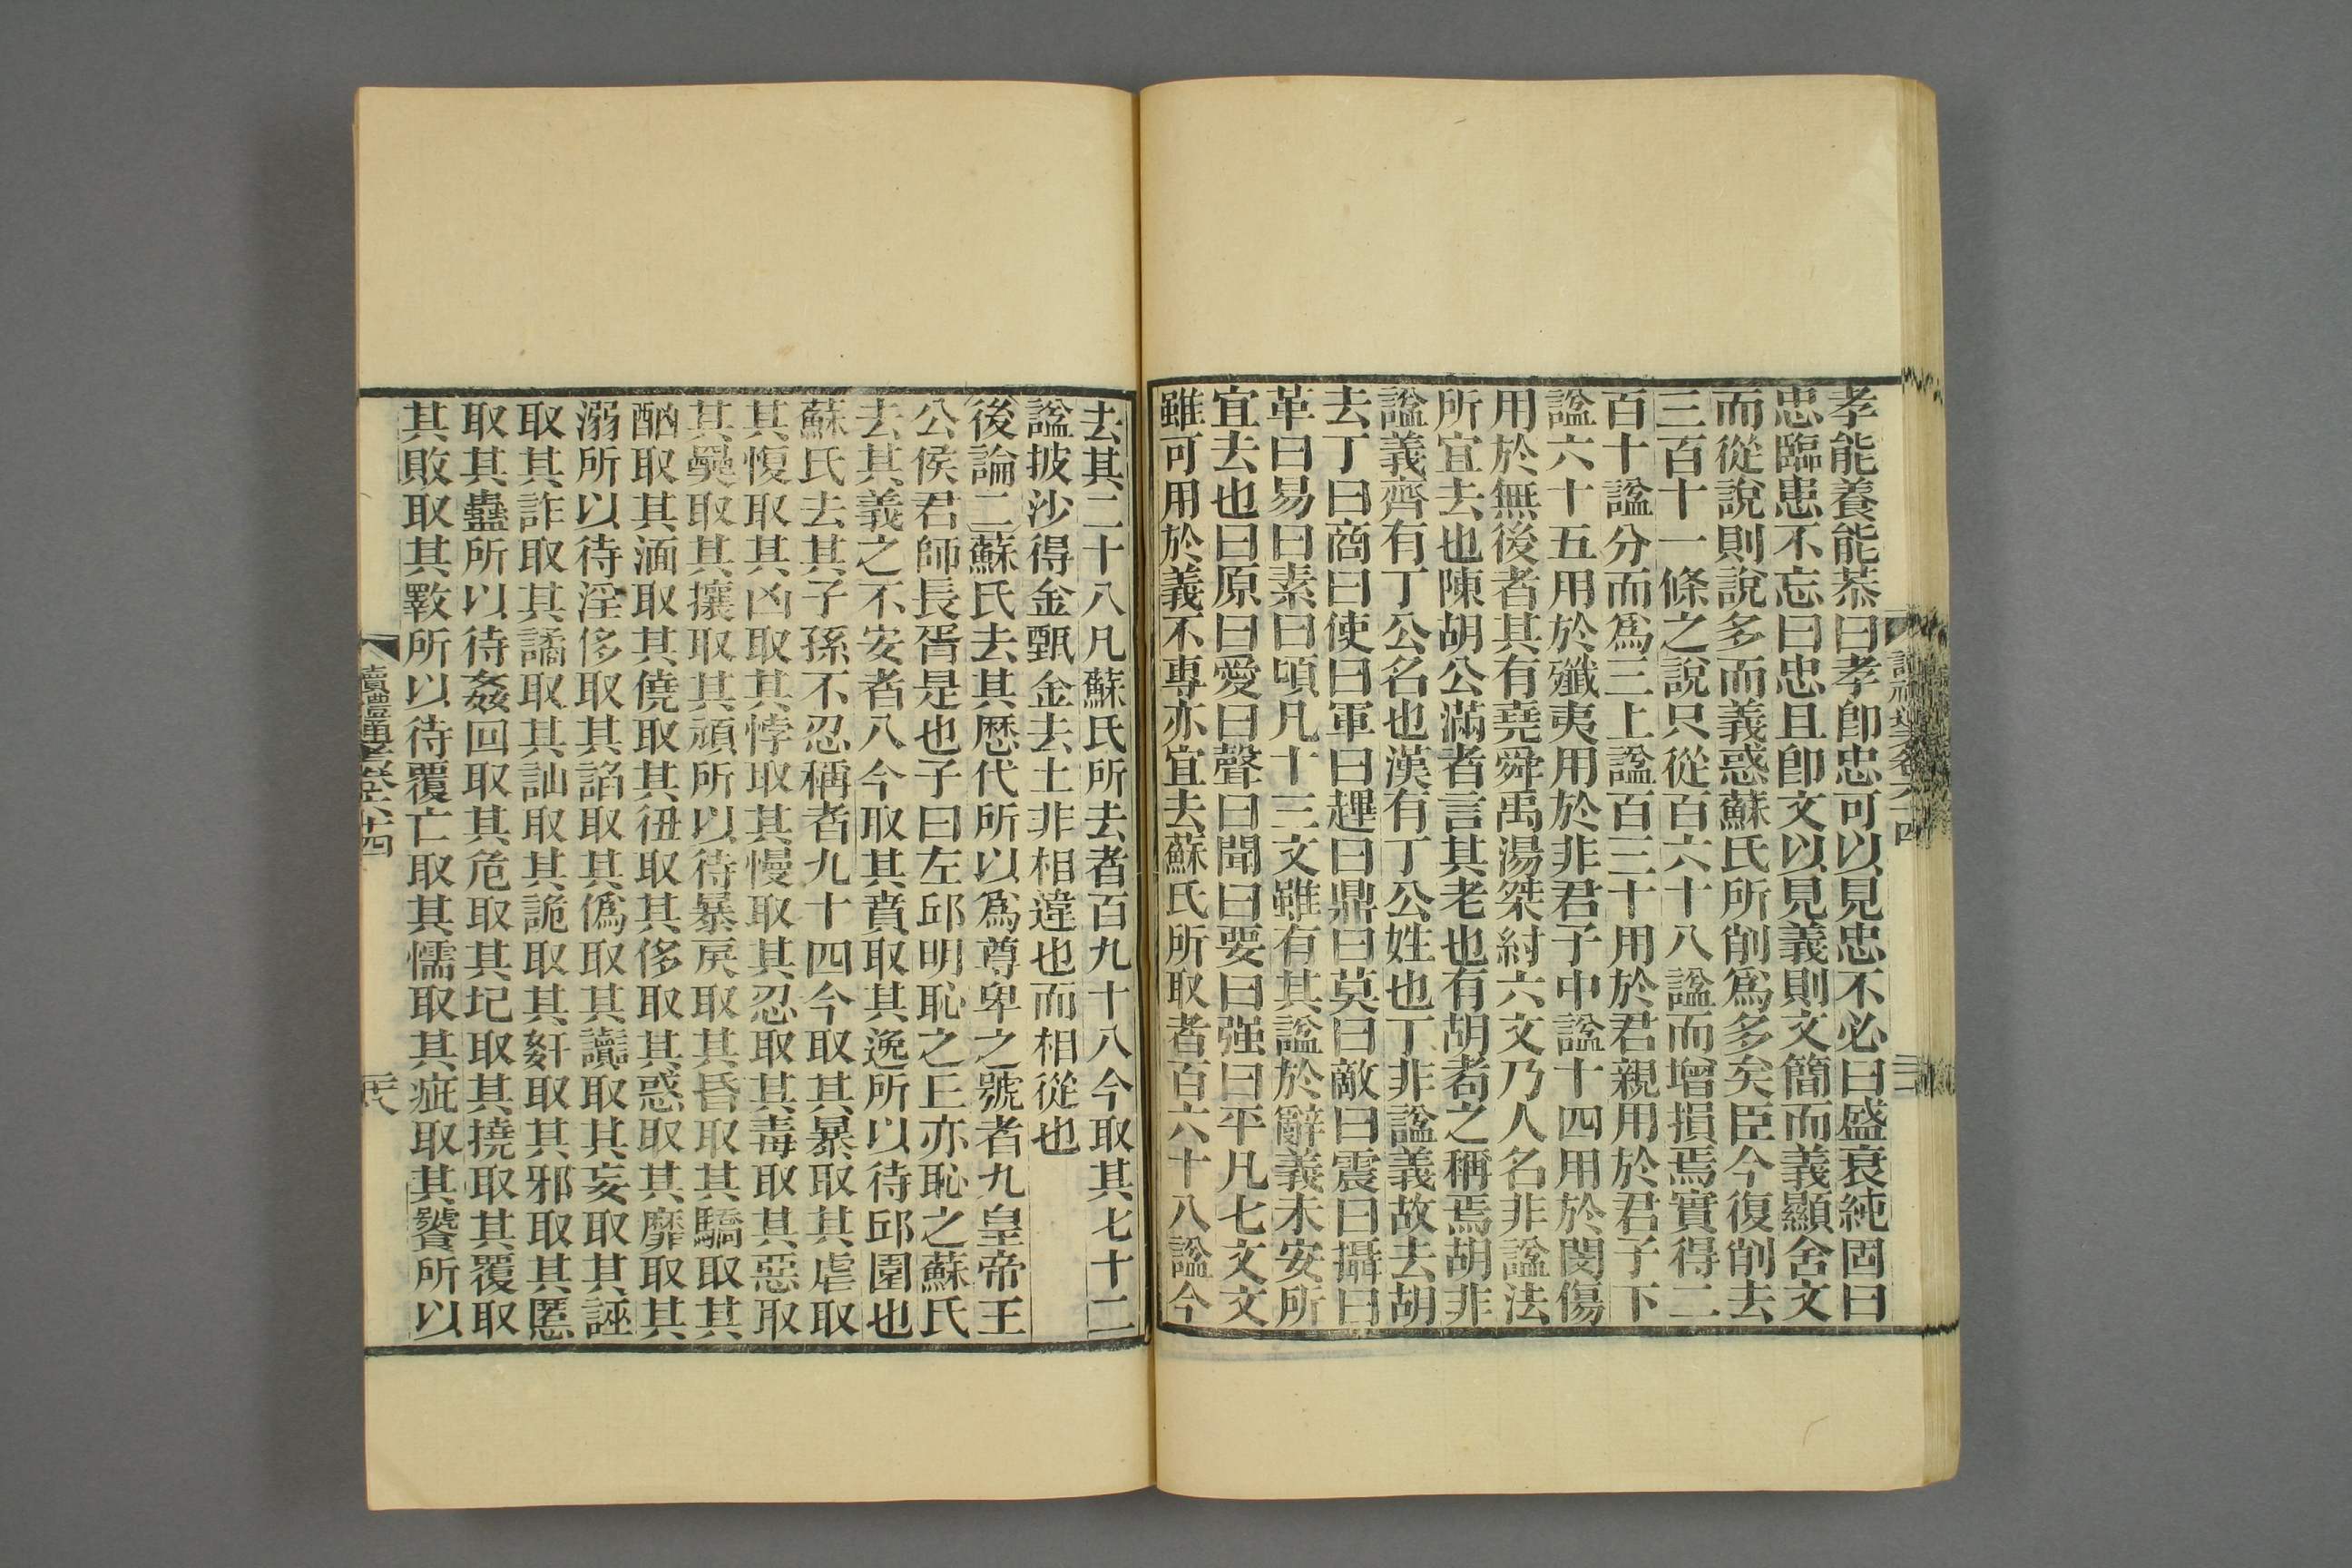 孝能養能恭曰孝卽忠可以見忠不必曰盛衰純固曰
忠臨患不忘曰忠且卽文以見義則文簡而義顯舍文
而從說則說多而義惑蘇氏所削爲多矣臣今復削去
三百十一條之說只從百六十八諡而增損焉實得二
百十諡分而爲三上諡百三十用於君親用於君子下
諡六十五用於殲夷用於非君子中諡十四用於閔傷
用於無後者其有堯舜禹湯桀紂六文乃人名非諡法
所宜去也陳胡公滿者言其老也有胡耇之稱焉胡非
諡義齊有丁公名也漢有丁公姓也丁非諡義故去胡
去丁曰商曰使曰軍曰趩曰鼎曰莫曰敵曰震曰攝曰
革曰易曰素曰頃凡十三文雖有其諡於辭義未安所
宜去也曰原曰愛曰聲曰聞曰要曰强曰平凡七文文
雖可用於義不專亦宜去蘇氏所取者百六十八諡今
去其二十八凡蘇氏所去者百九十八今取其七十二
諡披沙得金甄金去土非相違也而相從也
後論二蘇氏去其歷代所以爲尊卑之號者九皇帝王
公侯君師長胥是也子曰左邱明恥之丘亦恥之蘇氏
去其義之不安者八今取其賁取其逸所以待邱園也
蘇氏去其子孫不忍稱者九十四今取其暴取其虐取
其愎取其凶取其悖取其慢取其忍取其毒取其惡取
其㚟取其攘取其頑所以待暴戾取其昏取其驕取其
酗取其湎取其僥取其忸取其侈取其惑取其靡取其
溺所以待淫侈取其諂取其僞取其讟取其妄取其誣
取其詐取其譎取其訕取其詭取其姧取其邪取其慝
取其蠱所以待姦回取其危取其圮取其撓取其覆取
其敗取其斁所以待覆亡取其懦取其疵取其饕所以
讀禮通考卷六十四